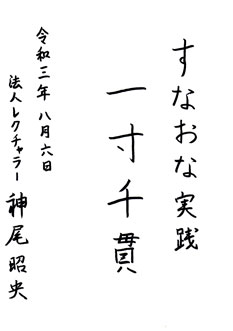 すなおな実践
一寸千貫
令和三年八月六日
法人レクチャラー 神尾昭央